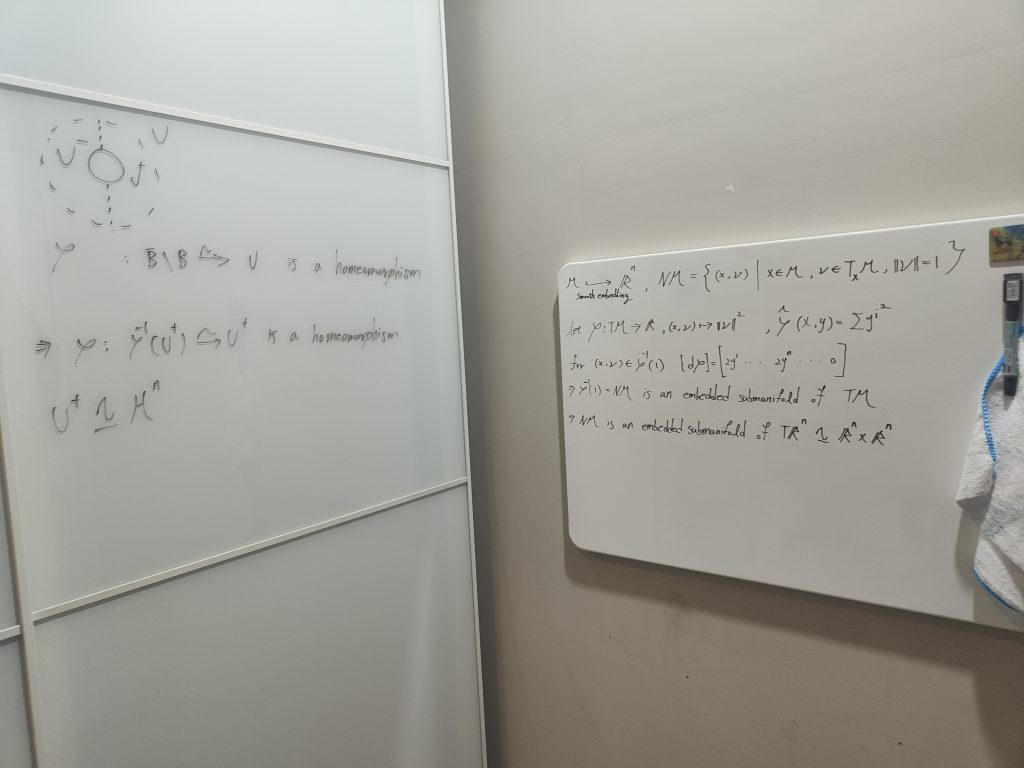 U
V f
φ : B̄∖B ⥲ U is a homeomorphism
⇒ φ : φ⁻¹(U⁺) ⥲ U⁺ is a homeomorphism
U⁺ ≃ Hⁿ
M ↪ ℝⁿ , NM = {(x,v) | x∈M , v∈TₓM , ‖v‖=1}
smooth embedding
let φ : TM → ℝ , (x,v) ↦ ‖v‖² , φ̂(x,y) = ∑yⁱ²
for (x,v) ∈ φ⁻¹(1) [dφ] = [2y¹ ··· 2yⁿ ··· 0]
⇒ φ⁻¹(1) = NM is an embedded submanifold of TM
⇒ NM is an embedded submanifold of Tℝⁿ ≃ ℝⁿ × ℝⁿ